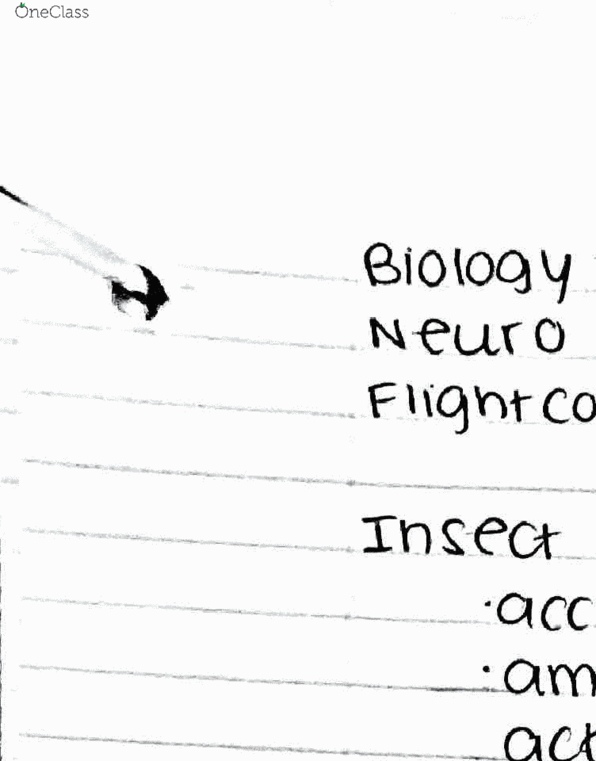 OneClass
Biology
Neuro
Flight co
Insect
·acc
·am
act